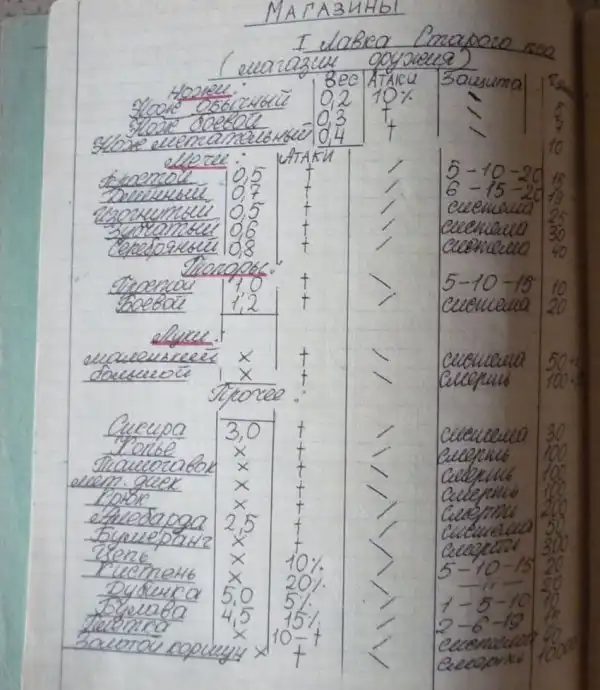 МАГАЗИНЫ
I Лавка Старого
(магазин оружия)
Вес Атаки Защита
Ножи:
Нож обычный 0,2 10% \ 5
Нож боевой 0,3 + \ 7
Нож метательный 0,4 + \ 10
Мечи: Атаки
Простой 0,5 + / 5-10-20 15
0,7 + / 6-15-20 19
Изогнутый 0,5 + / система 25
Зубчатый 0,6 + / система 30
Серебряный 0,8 + / система 40
Топоры:
Простой 1,0 + \ 5-10-15 10
Боевой 1,2 + / система 20
Луки:
маленький x + \ система 50
большой x + \ Смерть 100
Прочее:
Сикира 3,0 + / система 30
Копьё x + / смерть 100
x + \ смерть 100
мет. диск x + \ смерть 100
Крюк x + / Смерти 200
Алебарда 2,5 + / система 50
Бумеранг x + / Смерти 300
Цепь x 10% \ 5-10-15 20
Кистень x 20% \ -"- 50
Дубинка 5,0 5% / 1-5-10 10
Булава 4,5 15% / 2-6-19
Плётка x 10-+ / система 50
Золотой коршун x + \ смерти 10000